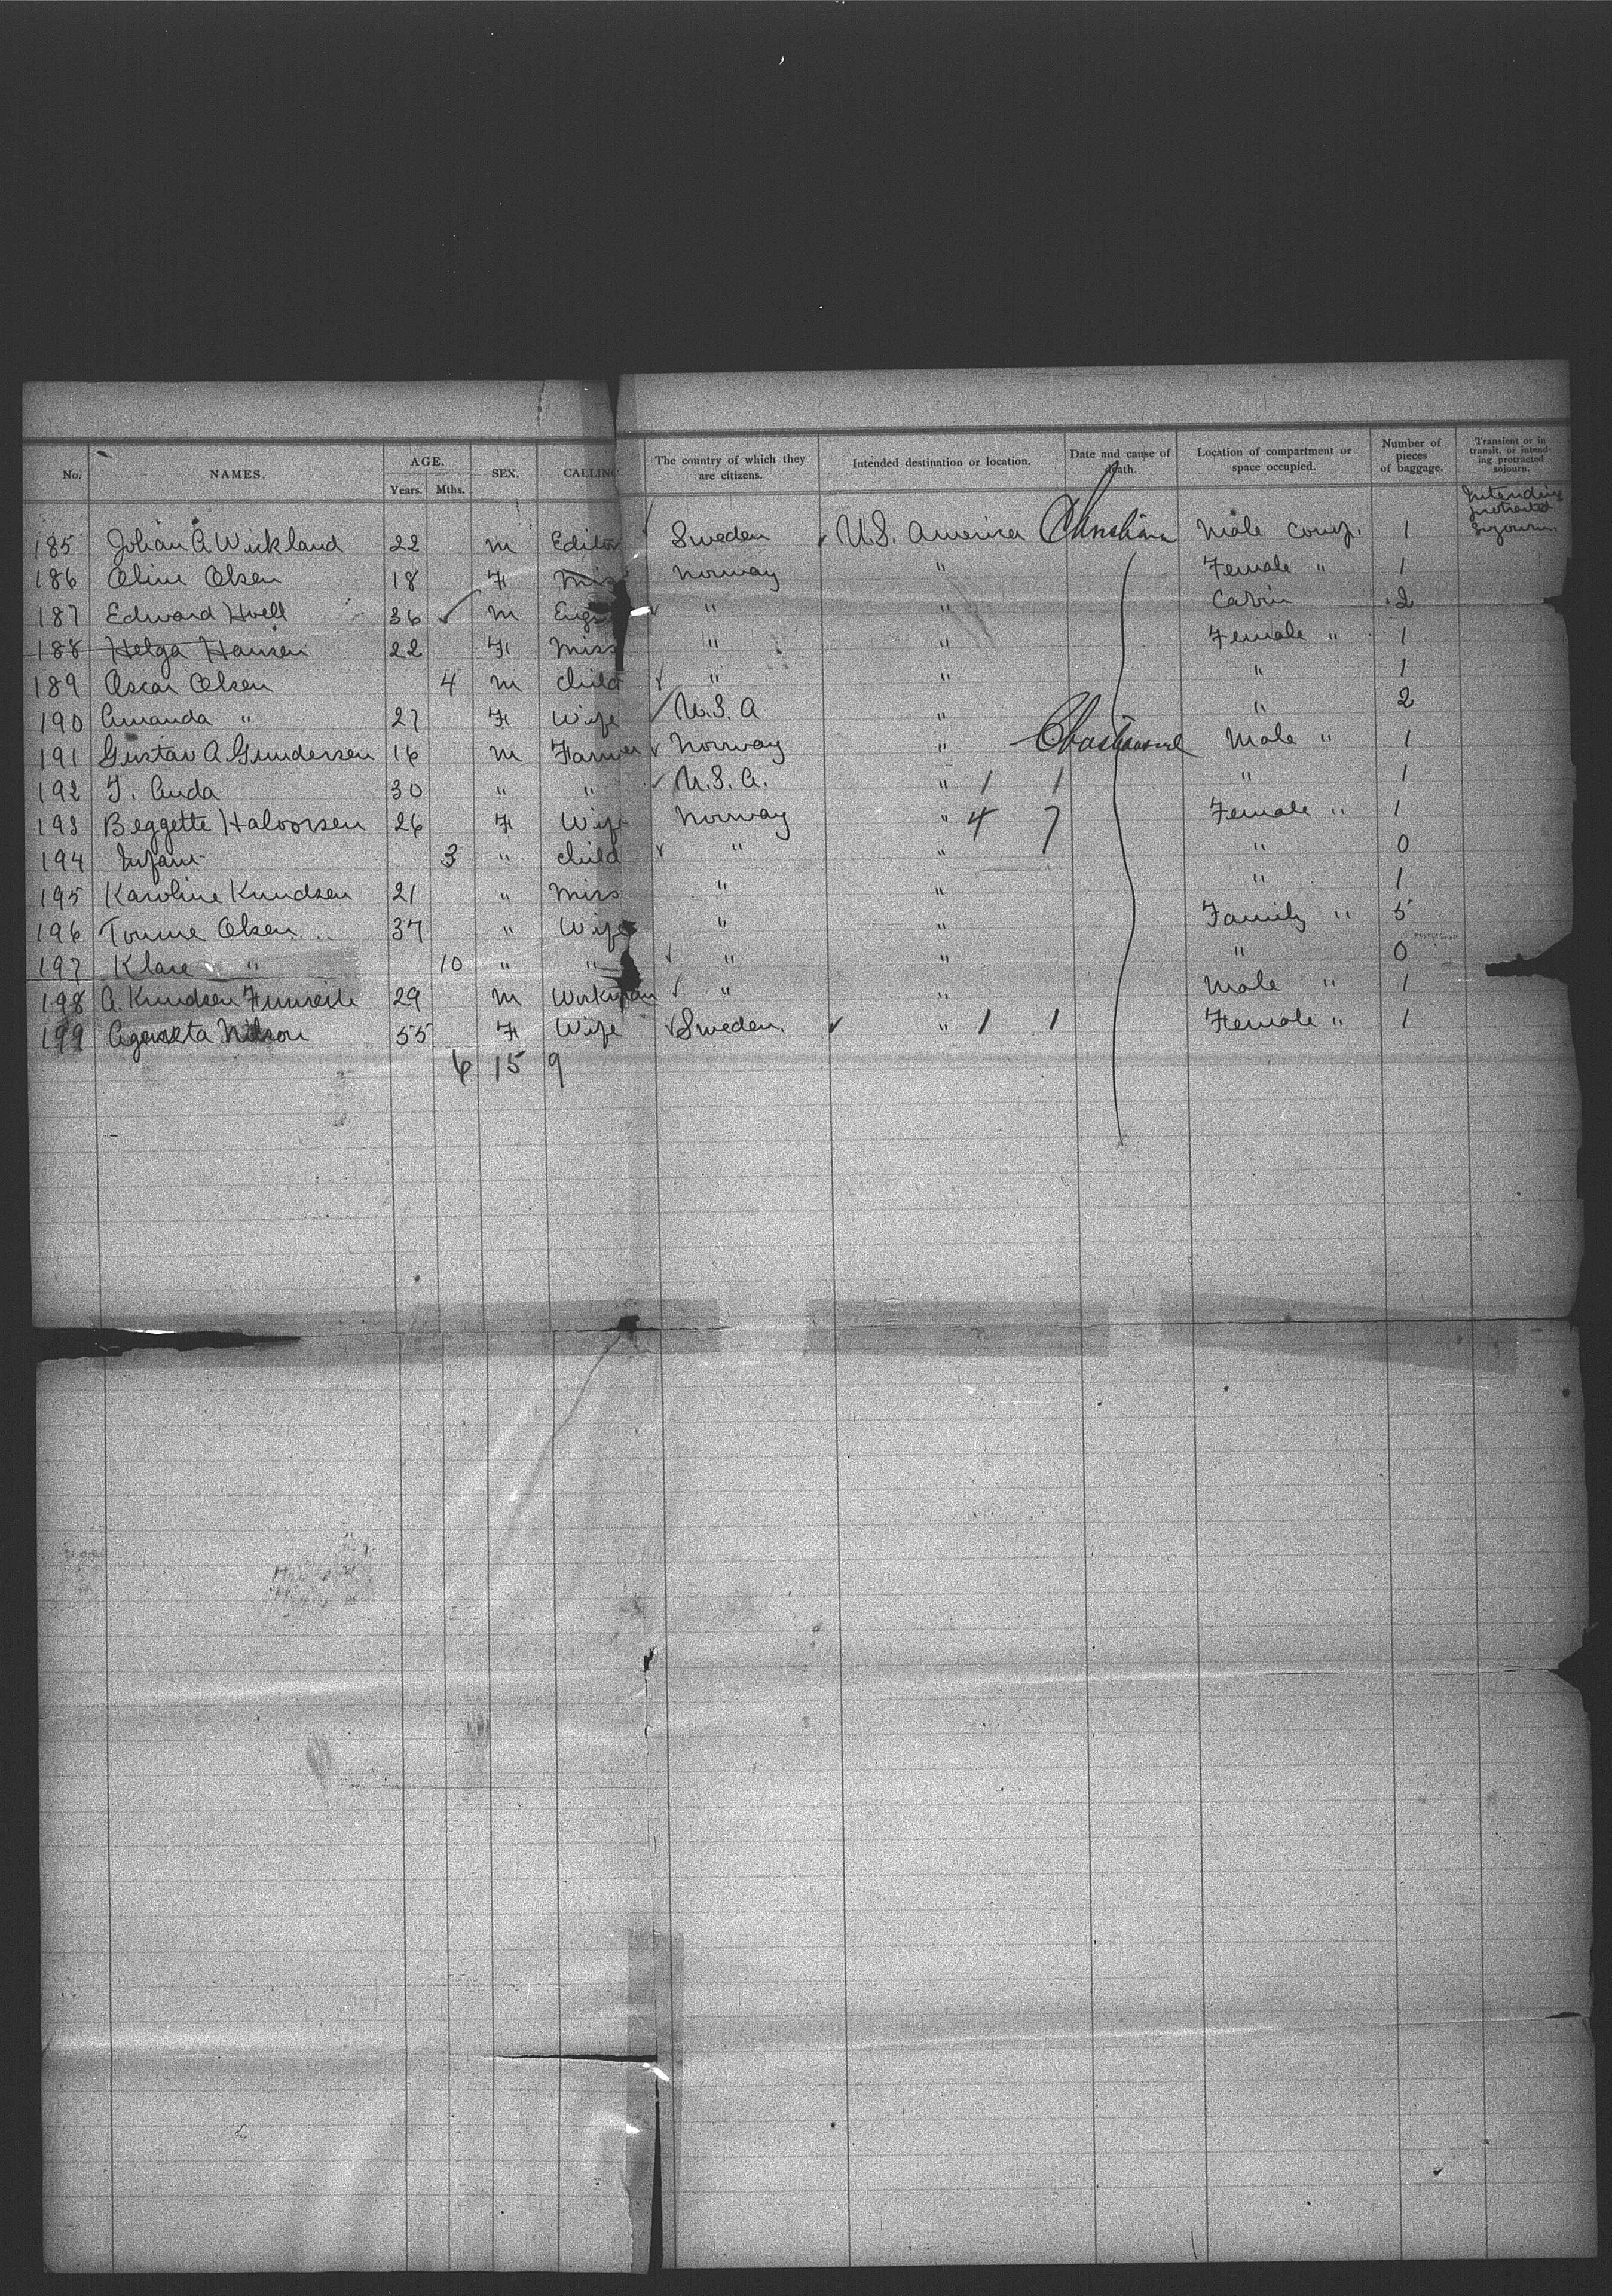 No. NAMES. AGE. Years. Mths. SEX. CALLING The country of which they are citizens. Intended destination or location. Date and cause of death. Location of compartment or space occupied. Number of pieces of baggage. Transient or in transit, or intending protracted sojourn.
Intending protracted sojourn.
185 Johan A Wickland 22 M Editor Sweden U.S. America Christiania Male comp. 1
186 Oline Olsen 18 F Miss Norway " Female " 1
187 Edward Hvell 36 M Eng " " Cabin 2
188 Helga Hansen 22 F Miss " " Female " 1
189 Oscar Olsen 4 M Child " " " 1
190 Amanda " 27 F Wife U.S.A " " 2
191 Gustav A Gundersen 16 M Farmer Norway " Male " 1
192 T. Anda 30 " " U.S.A. " 1 1 " 1
193 Beggette Halvorsen 26 F Wife Norway " 4 7 Female " 1
194 Infant 3 " Child " " " 0
195 Karoline Knudsen 21 " Miss " " " 1
196 Tonne Olsen 37 " Wife " " Family " 5
197 Klare " 10 " " " " " 0
198 A. Knudsen 29 M Workman " " Male " 1
199 Nilson 55 F Wife Sweden. " 1 1 Female " 1
6 15 9